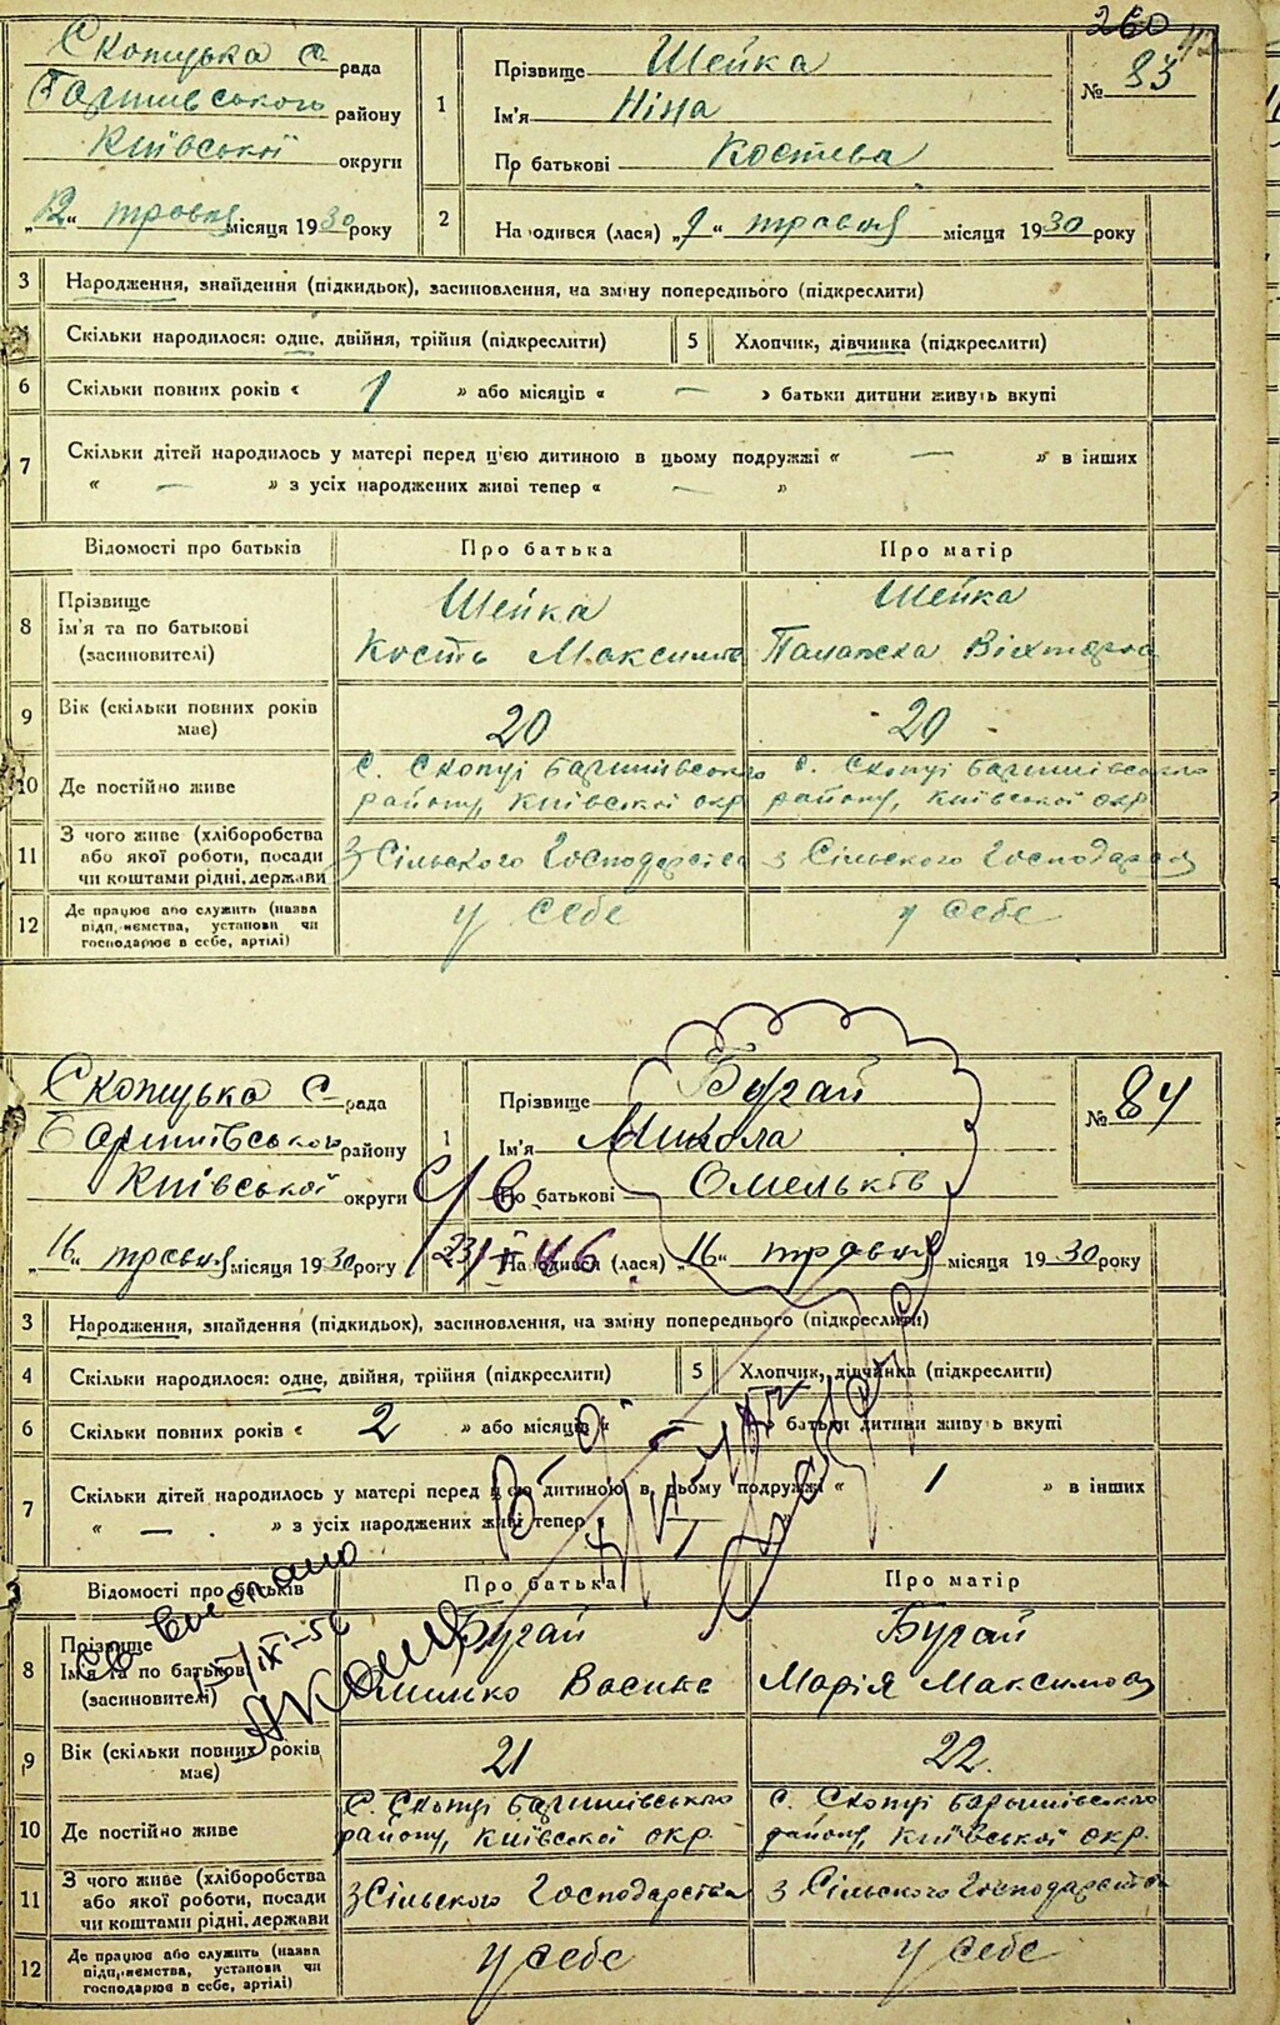 260
Скопцька С. рада
Баришівського району
Київської округи
„12“ травня місяця 1930 року
№ 83
1
Прізвище Шейка
Ім'я Ніна
По батькові Костева
2
Народився (лася) „9“ травня місяця 1930 року
3 Народження, знайдення (підкидьок), засиновлення, на зміну попереднього (підкреслити)
Скільки народилося: одне, двійня, трійня (підкреслити) 5 Хлопчик, дівчинка (підкреслити)
6 Скільки повних років « 1 » або місяців « — » батьки дитини живуть вкупі
7 Скільки дітей народилось у матері перед цією дитиною в цьому подружжі « — » в інших
« — » з усіх народжених живі тепер « — »
Відомості про батьків Про батька Про матір
8 Прізвище Шейка Шейка
Ім'я та по батькові Кость Максимів Палажка
(засиновителі)
9 Вік (скільки повних років має) 20 20
10 Де постійно живе с. Скопці Баришівського с. Скопці Баришівського
району, Київської окр району, Київської окр
11 З чого живе (хліборобства
або якої роботи, посади з Сільского Господарства з Сільского Господарства
чи коштами рідні, держави
12 Де працює або служить (назва
підприємства, установи чи у себе у себе
господарює в себе, артілі)
Скопцька С. рада
Баришівського району
Київської округи
„16“ травня місяця 1930 року
№ 84
1
Прізвище Бугай
Ім'я Микола
По батькові Омельків
Народився (лася) „16“ травня місяця 1930 року
3 Народження, знайдення (підкидьок), засиновлення, на зміну попереднього (підкреслити)
4 Скільки народилося: одне, двійня, трійня (підкреслити) 5 Хлопчик, дівчинка (підкреслити)
6 Скільки повних років « 2 » або місяців « — » батьки дитини живуть вкупі
7 Скільки дітей народилось у матері перед цією дитиною в цьому подружжі « 1 » в інших
« — » з усіх народжених живі тепер « 1 »
Відомості про батьків Про батька Про матір
8 Прізвище Бугай Бугай
Ім'я та по батькові Марія Максимова
(засиновителі)
9 Вік (скільки повних років має) 21 22
10 Де постійно живе с. Скопці Баришівського с. Скопці Баришівського
району, Київської окр. району, Київської окр.
11 З чого живе (хліборобства
або якої роботи, посади з Сільского Господарства з Сільского Господарства
чи коштами рідні, держави
12 Де працює або служить (назва
підприємства, установи чи у себе у себе
господарює в себе, артілі)